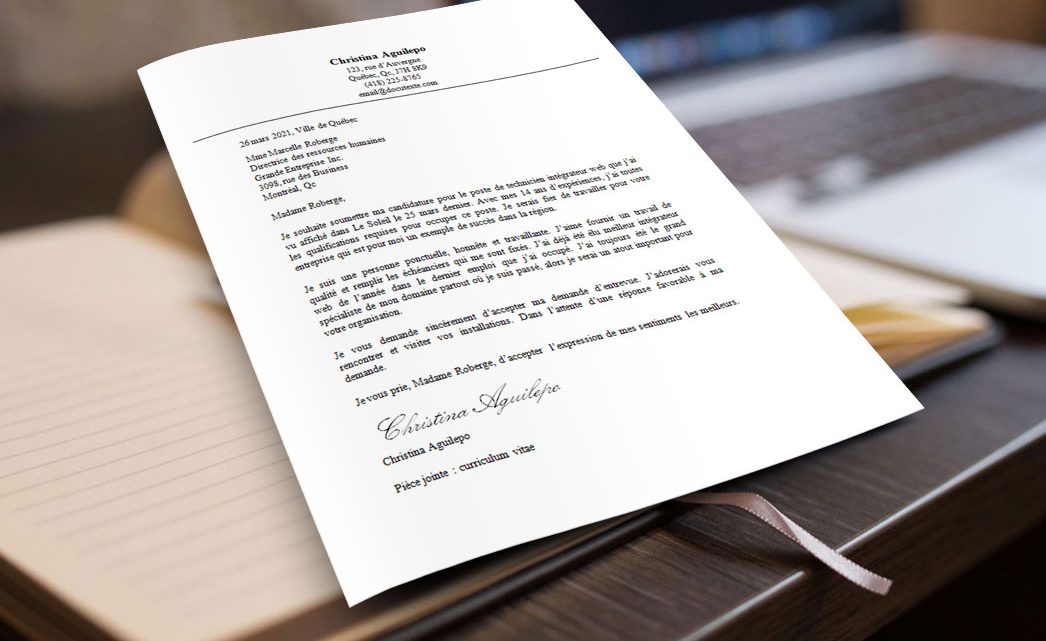 Christina Aguilepo
123, rue d'Auvergne
Québec, Qc, J7H 8K9
(418) 225-8765
email@docutexte.com
26 mars 2021, Ville de Québec
Mme Marcelle Roberge
Directrice des ressources humaines
Grande Entreprise Inc.
3098, rue des Business
Montréal, Qc
Madame Roberge,
Je souhaite soumettre ma candidature pour le poste de technicien intégrateur web que j'ai
vu affiché dans Le Soleil le 25 mars dernier. Avec mes 14 ans d'expériences, j'ai toutes
les qualifications requises pour occuper ce poste. Je serais fier de travailler pour votre
entreprise qui est pour moi un exemple de succès dans la région.
Je suis une personne ponctuelle, honnête et travaillante. J'aime fournir un travail de
qualité et remplir les échéanciers qui me sont fixés. J'ai déjà été élu meilleur intégrateur
web de l'année dans le dernier emploi que j'ai occupé. J'ai toujours été le grand
spécialiste de mon domaine partout où je suis passé, alors je serai un atout important pour
votre organisation.
Je vous demande sincèrement d'accepter ma demande d'entrevue. J'adorerais vous
rencontrer et visiter vos installations. Dans l'attente d'une réponse favorable à ma
demande.
Je vous prie, Madame Roberge, d'accepter l'expression de mes sentiments les meilleurs.
Christina Aguilepo
Christina Aguilepo
Pièce jointe : curriculum vitae